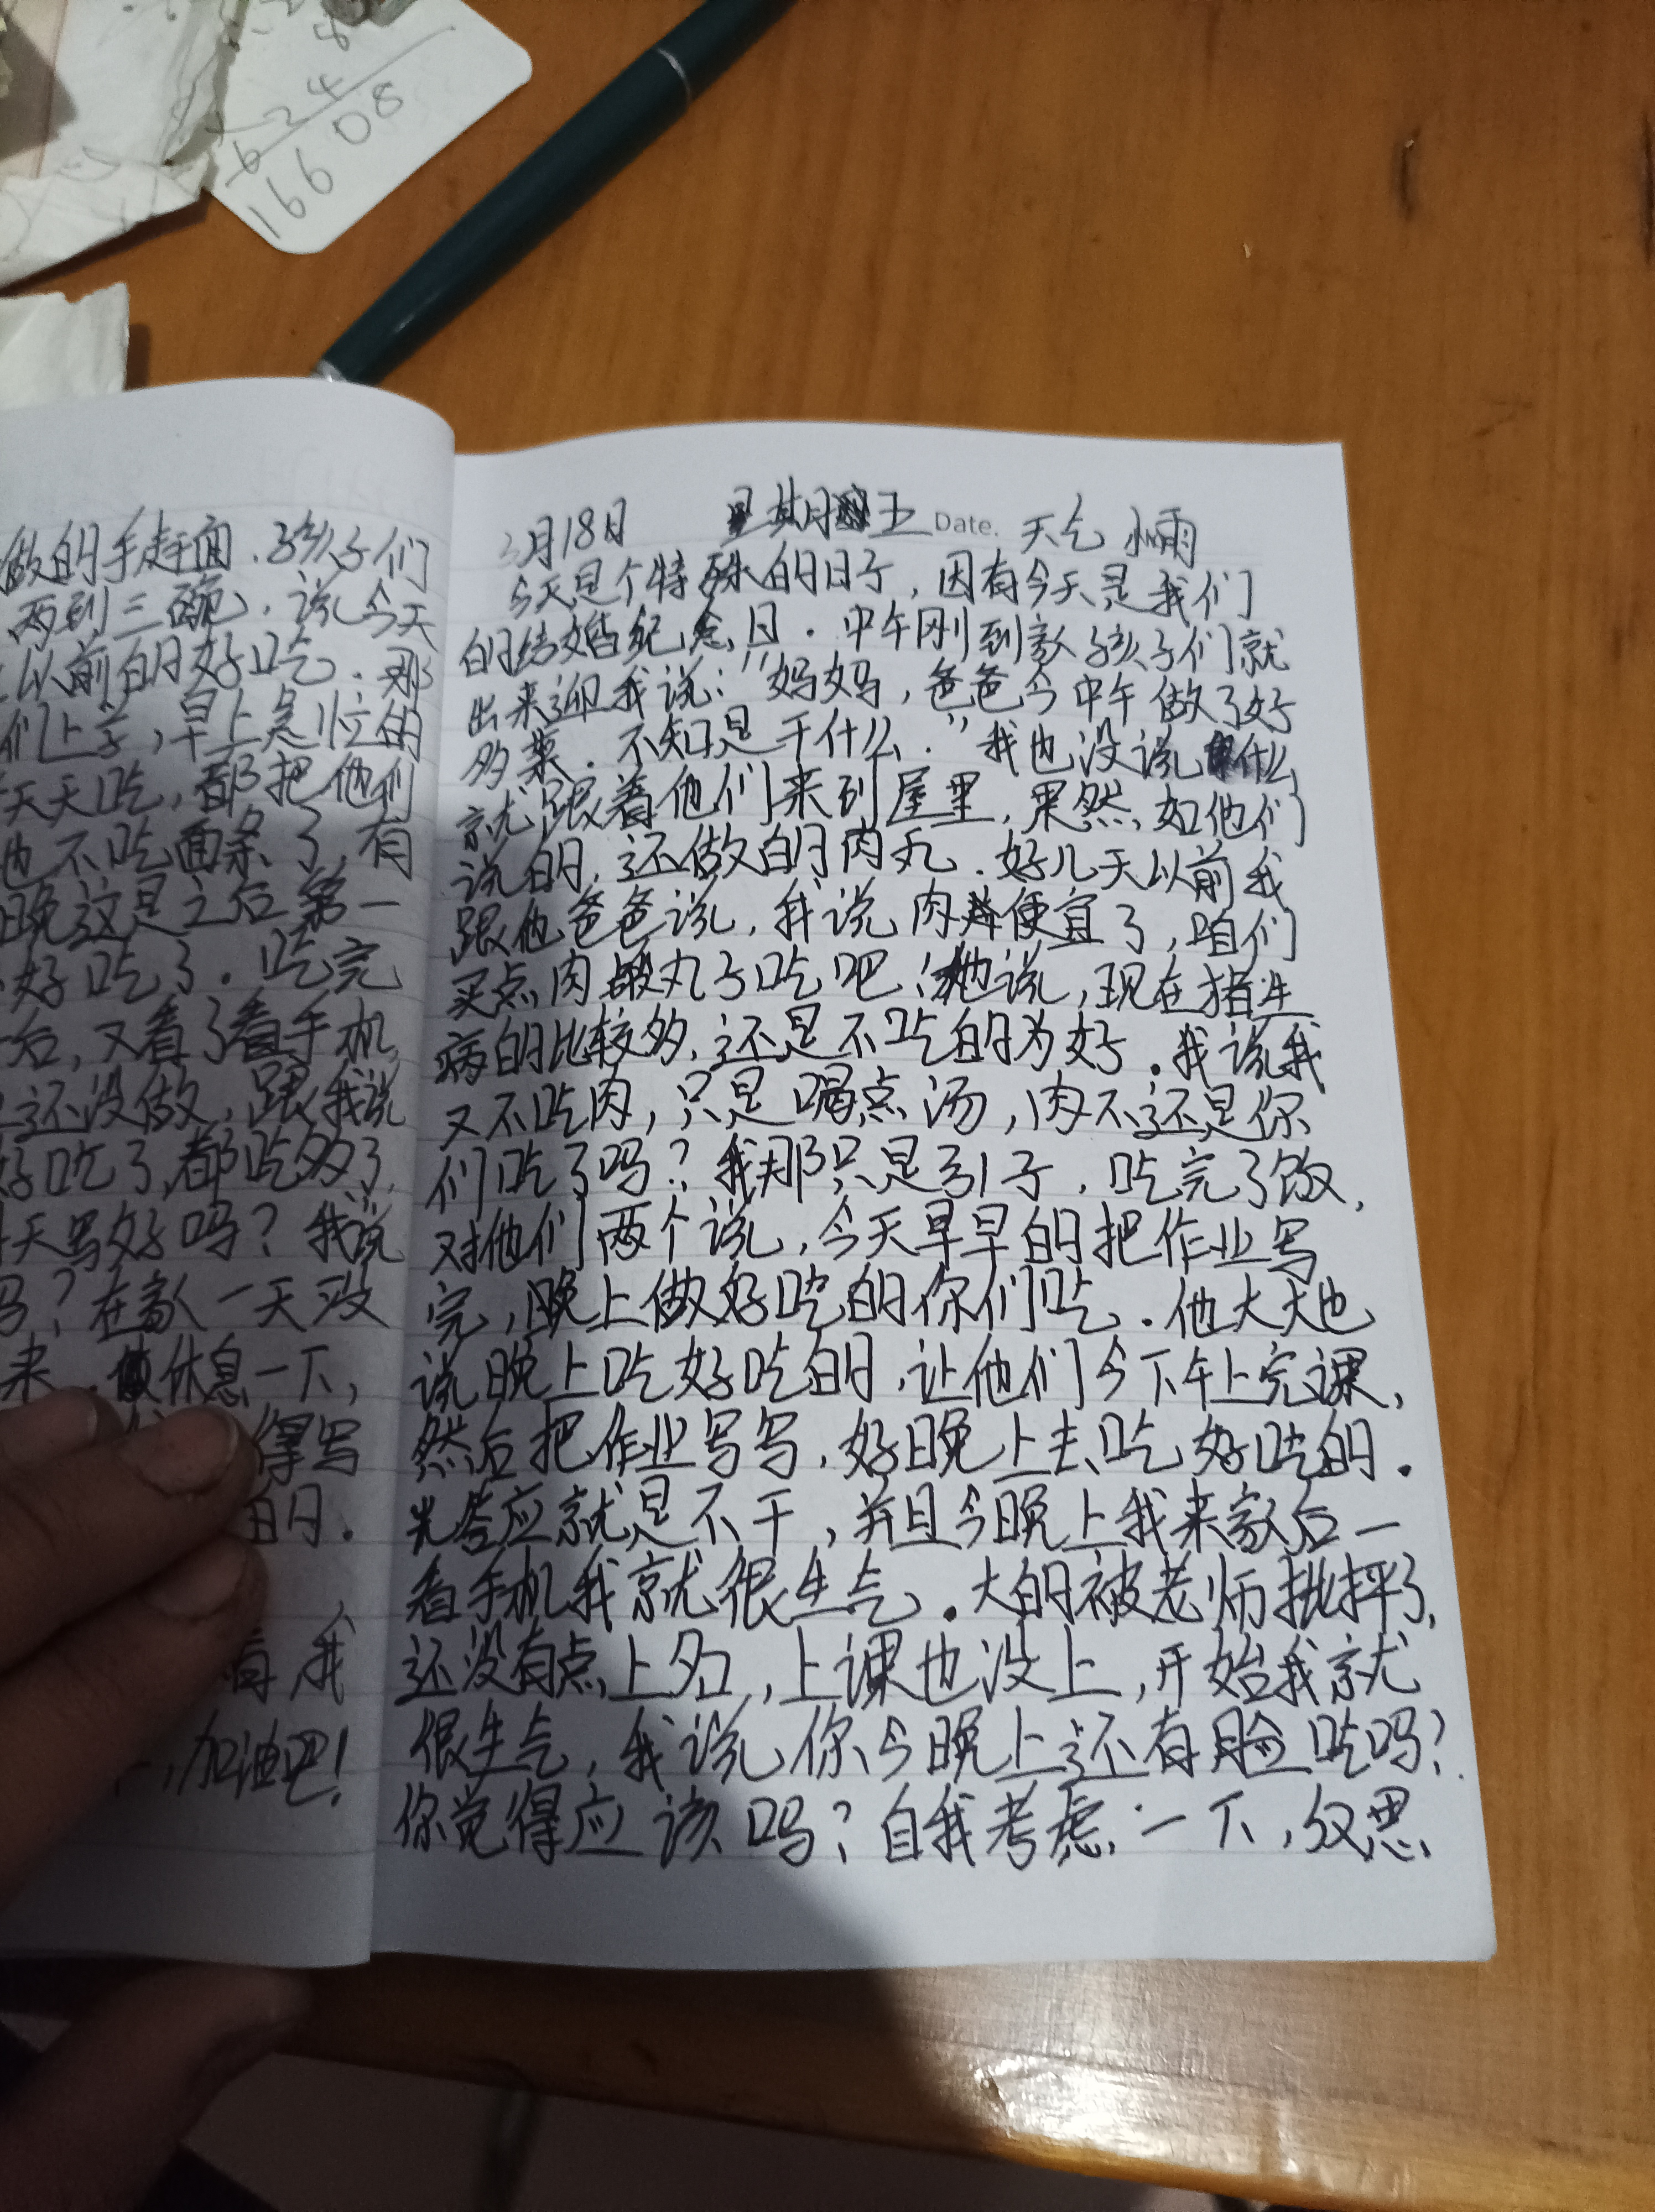 8
624
16608
做的手赶面.孩子们
两到三碗.说今天
以前的好吃.那
们上学,早上急忙的
天天吃,都把他们
也不吃面条了,有
晚这是之后第一
好吃了.吃完
后,又看了看手机
还没做,跟我说
好吃了,都吃多了,
天写好吗?我说
吗?在家一天没
来.休息一下,
得写
的.
我
,加油吧!
3月18日 星期五 Date. 天气 小雨
今天是个特殊的日子,因有今天是我们
的结婚纪念日.中午刚到家孩子们就
出来迎我说:"妈妈,爸爸今中午做了好
多菜.不知是干什么."我也没说什么
就跟着他们来到屋里,果然,如他们
说的,还做的肉丸.好几天以前我
跟他爸爸说,我说肉便宜了,咱们
买点肉做丸子吃吧!他说,现在猪生
病的比较多,还是不吃的为好.我说我
又不吃肉,只是喝点汤,肉不还是你
们吃了吗?我那只是引子,吃完了饭,
对他们两个说,今天早早的把作业写
完,晚上做好吃的你们吃.他大大也
说晚上吃好吃的,让他们今下午上完课,
然后把作业写写,好晚上去吃好吃的.
光答应就是不干,并且今晚上我来家后一
看手机我就很生气.大的被老师批抨了,
还没有点上名,上课也没上,开始我就
很生气,我说你今晚上还有脸吃吗?
你觉得应该吗?自我考虑一下,反思